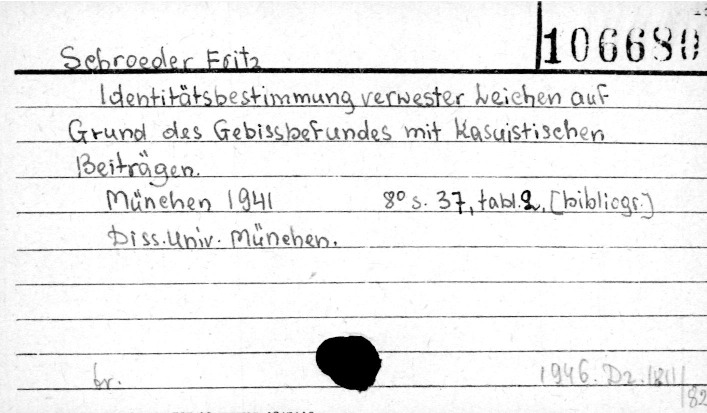 106680
Schroeder Fritz
Identitätsbestimmung verwester Leichen auf
Grund des Gebissbefundes mit Kasuistischen
Beiträgen.
München 1941 8° s. 37, tabl. 2, [bibliogr.]
Diss. Univ. München.
br. 1946. Dz.